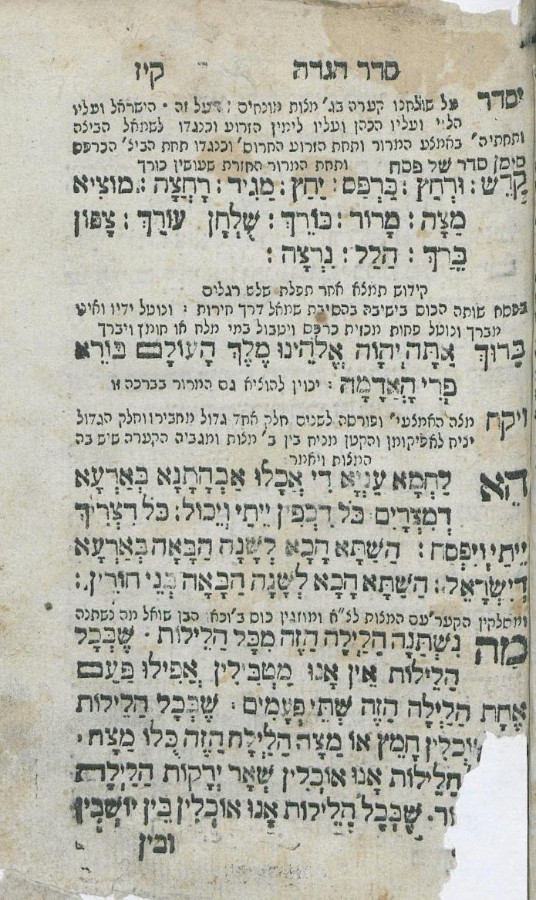 סדר הגדה קיז
יסדר על שולחנו קערה בג' מצות מונחים זו על זה ׃ הישראל ועליו
הלוי ועליו הכהן ועליו לימין הזרוע וכנגדו לשמאל הביצה
ותחתיה' באמצע המרור ותחת הזרוע החרוס' וכנגדו תחת הביצ' הכרפס
ותחת המרור החזרת שעושין כורך סימן סדר של פסח
קַדֵּשׁ : וּרְחַץ : כַּרְפַּס : יַחַץ : מַגִּיד : רָחְצָה : מוֹצִיא
מַצָּה : מָרוֹר : כּוֹרֵךְ : שֻׁלְחָן עוֹרֵךְ : צָפוּן
בָּרֵךְ : הַלֵּל : נִרְצָה :
קידוש תמצא אחר תפלת שלש רגלים
בפסח שותה הכוס בישיבה בהסיבת שמאל דרך חירות : ונוטל ידיו ואינו
מברך ונוטל פחות מכזית כרפס ויטבול במי מלח או חומץ ויברך
בָּרוּךְ אַתָּה יְהוָֹה אֱלֹהֵינוּ מֶלֶךְ הָעוֹלָם בּוֹרֵא
פְּרִי הָאֲדָמָה : יכוין להוציא גם המרור בברכה זו
ויקח מצה האמצעי' ופורסה לשנים חלק אחד גדול מחבירו וחלק הגדול
יניח לאפיקומן והקטן מניח בין ב' מצות ומגביה הקערה שיש בה
המצות ויאמר
הֵא לַחְמָא עַנְיָא דִי אֲכָלוּ אַבְהָתָנָא בְּאַרְעָא
דְמִצְרָיִם כֹּל דִכְפִין יֵיתֵי וְיֵכוֹל : כֹּל דִצְרִיךְ
יֵיתֵי וְיִפְסַח : הַשַׁתָּא הָכָא לְשָׁנָה הַבָּאָה בְּאַרְעָא
דְיִשְׂרָאֵל : הַשַׁתָּא הָכָא לְשָׁנָה הַבָּאָה בְּנֵי חוֹרִין :
ומסלקין הקער' עם המצות לצ"א ומוזגין כוס ב' וכא' הבן שואל מה נשתנה
מַה נִּשְׁתַּנָּה הַלַּיְלָה הַזֶּה מִכָּל הַלֵּילוֹת . שֶׁבְּכָל
הַלֵּילוֹת אֵין אָנוּ מַטְבִּילִין אֲפִילוּ פַּעַם
אֶחָת הַלַּיְלָה הַזֶּה שְׁתֵּי פְעָמִים : שֶׁבְּכָל הַלֵּילוֹת
אוֹכְלִין חָמֵץ אוֹ מַצָּה הַלַּיְלָה הַזֶּה כֻּלּוֹ מַצָּה .
הַלֵּילוֹת אָנוּ אוֹכְלִין שְׁאָר יְרָקוֹת הַלַּיְלָה
וֹר . שֶׁבְּכָל הַלֵּילוֹת אָנוּ אוֹכְלִין בֵּין יוֹשְׁבִין
ובין